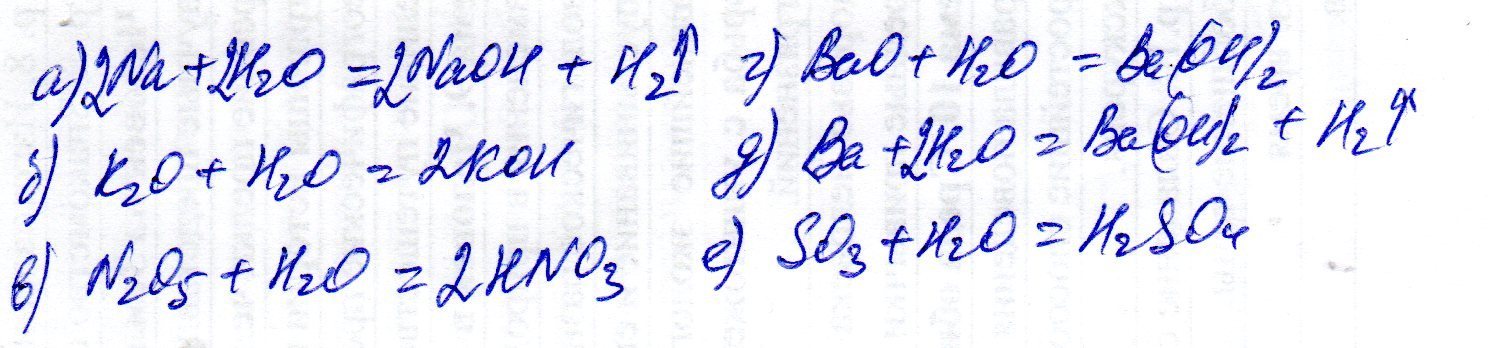 а) 2Na + 2H₂O = 2NaOH + H₂↑
б) K₂O + H₂O = 2KOH
в) N₂O₅ + H₂O = 2HNO₃
г) BaO + H₂O = Ba(OH)₂
д) Ba + 2H₂O = Ba(OH)₂ + H₂↑
е) SO₃ + H₂O = H₂SO₄